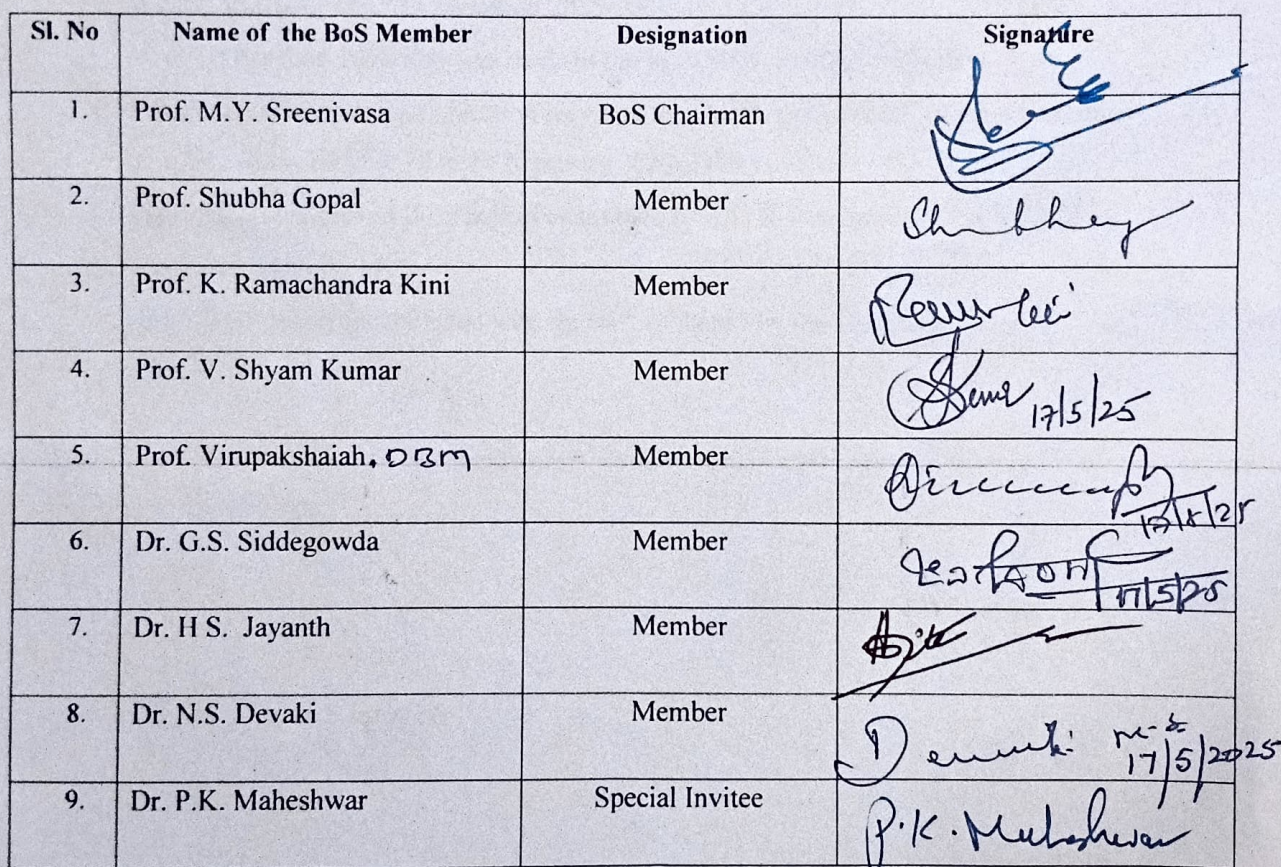 Sl. No Name of the BoS Member Designation Signature
1. Prof. M.Y. Sreenivasa BoS Chairman
2. Prof. Shubha Gopal Member
3. Prof. K. Ramachandra Kini Member
4. Prof. V. Shyam Kumar Member 17/5/25
5. Prof. Virupakshaiah. DBM Member
6. Dr. G.S. Siddegowda Member 17/5/25
7. Dr. H S. Jayanth Member
8. Dr. N.S. Devaki Member 17/5/2025
9. Dr. P.K. Maheshwar Special Invitee P.K. Maheshwar